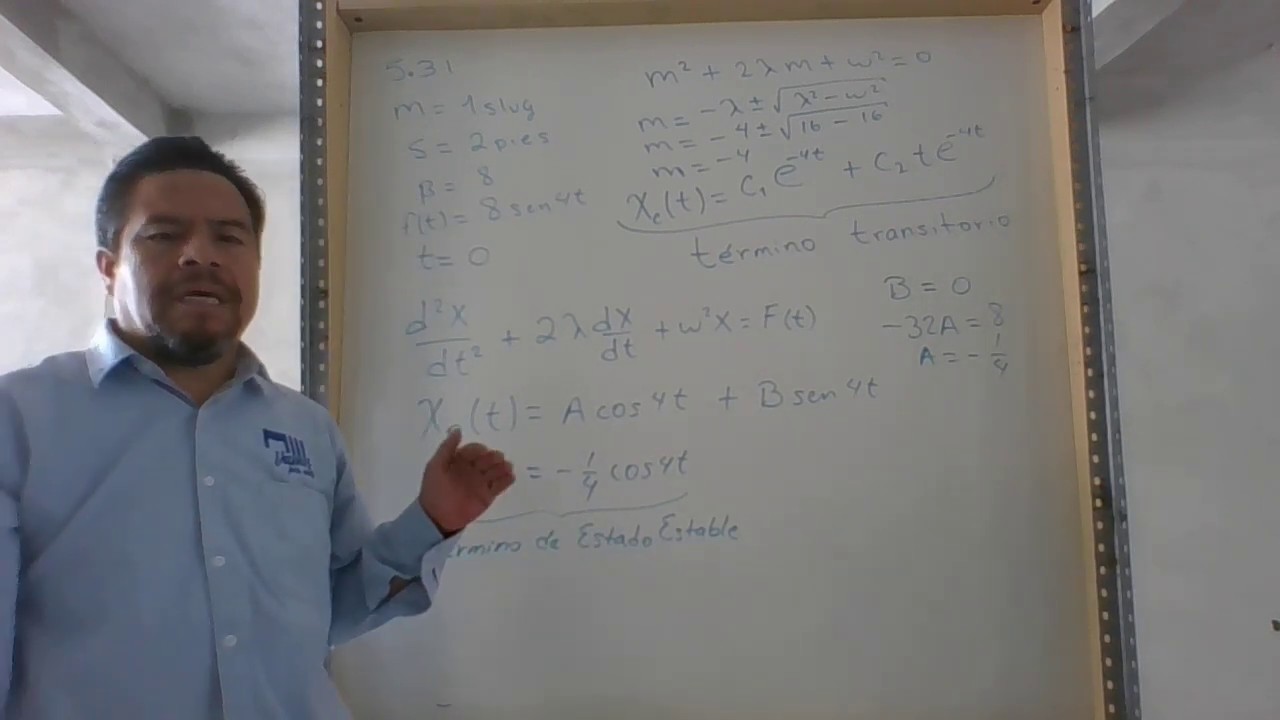 5.31
m = 1 slug
S = 2 pies
β = 8
f(t) = 8 sen 4t
t = 0
m² + 2λm + w² = 0
m = -λ ± √λ² - w²
m = -4 ± √16 - 16
m = -4
Xc(t) = C₁ e^-4t + C₂ t e^-4t
término transitorio
d²x/dt² + 2λ dx/dt + w²x = F(t)
B = 0
-32A = 8
A = -1/4
X (t) = A cos 4t + B sen 4t
= -1/4 cos 4t
ermino de Estado Estable